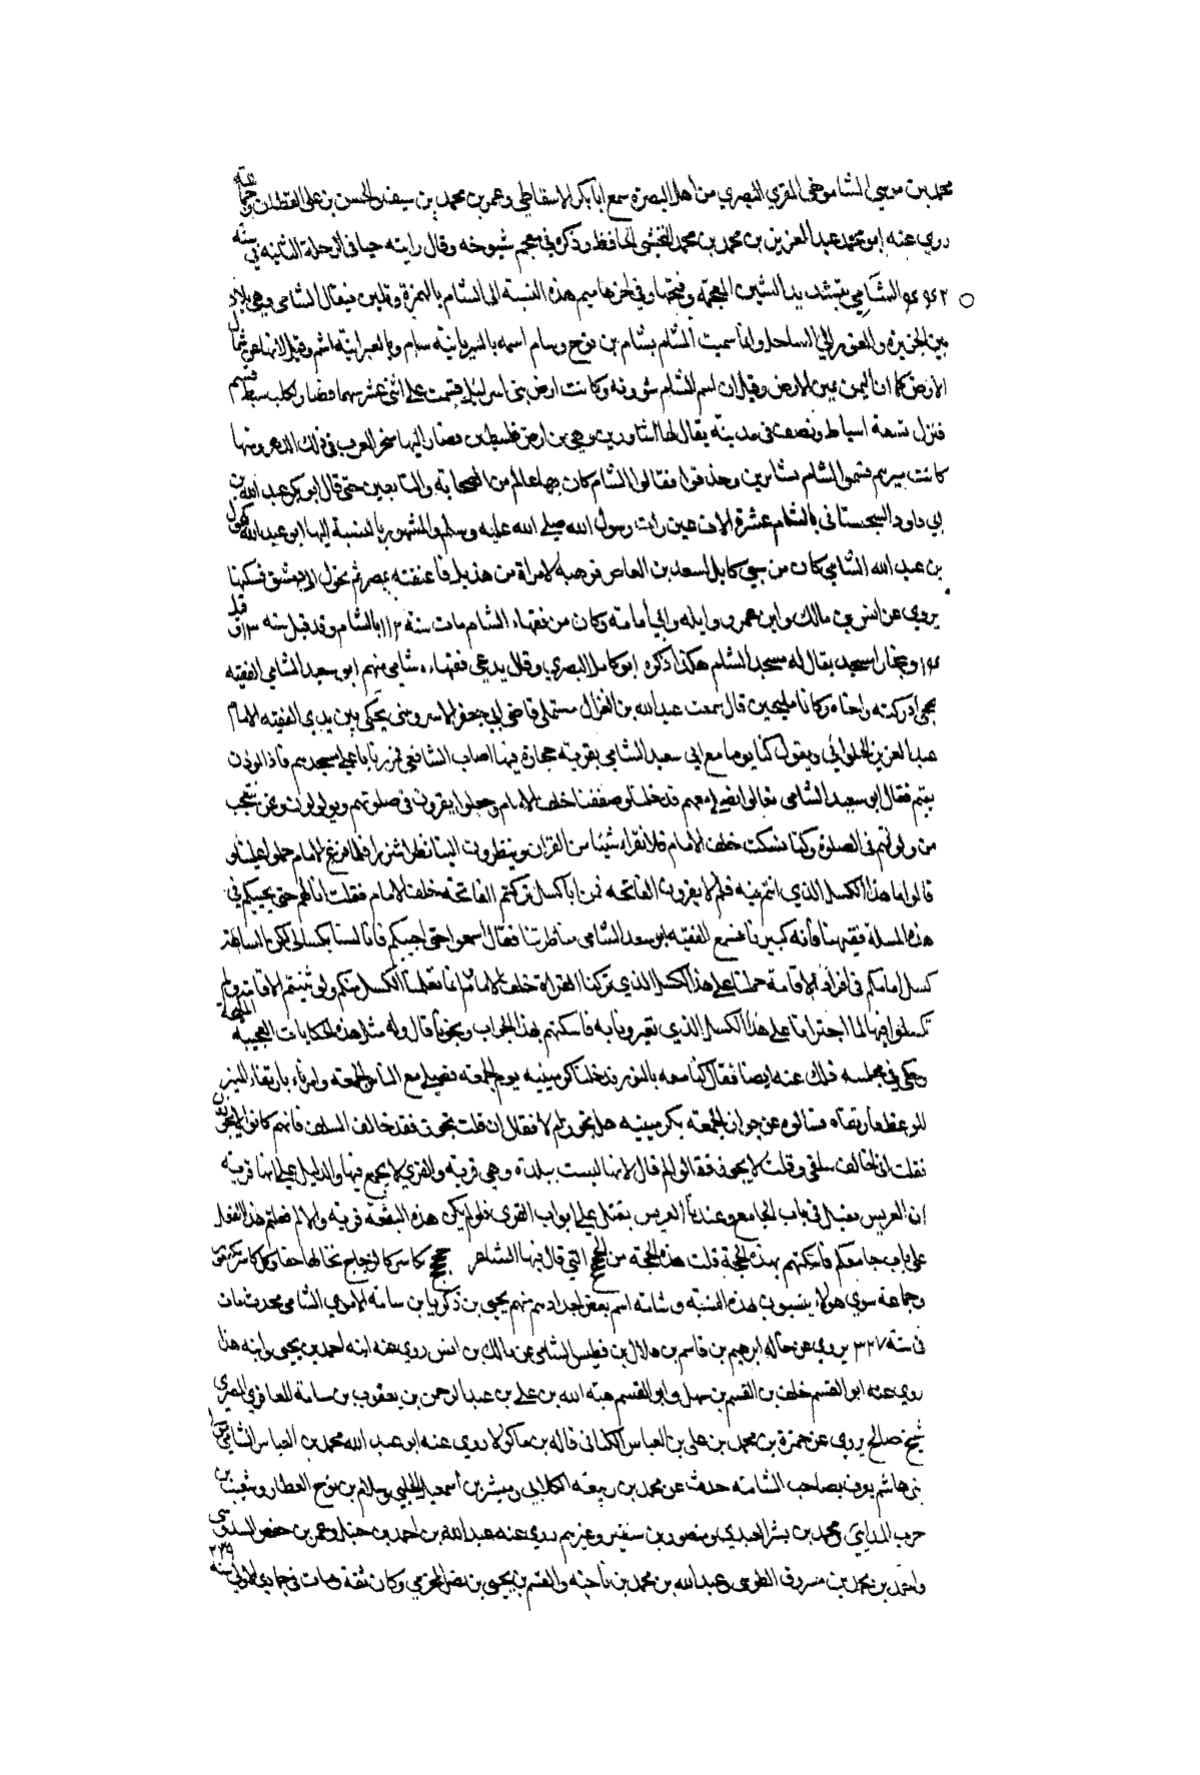 محمد بن موسى الشاموخي المقري البصري من أهل البصرة سمع ابا بكر الاسفاطي وعمر بن محمد بن سيف والحسن بن علي القطان وجماعة
روي عنه ابو محمد عبد العزيز بن محمد بن محمد النخشبي الحافظ وذكره في معجم شيوخه وقال رايته حيا في الرحلة الثانية في سنة
الشامي بتشديد الشين المعجمة وفتحها وفي اخرها ميم هذه النسبة الى الشام بالهمزة وتلين فيقال الشامي وهي بلاد
بين الجزيرة والغور الي الساحل وانما سميت الشام بشام بن نوح وسام اسمه بالسريانية سام وبالعبرانية اشم وقيل لانها عن شمال
الارض كما ان اليمن يمين الارض وقيل ان اسم الشام سورية وكانت ارض بني اسرائيل قسمت على اثني عشر سهما فصار لكل سبط قسم
فنزل تسعة اسباط ونصف في مدينة يقال لها الشاورين وهي من ارض فلسطين فصار اليها متجر العرب في ذلك الدهر ومنها
كانت ميرهم فسموا الشام بشامرين وحذفوا فقالوا الشام كان بها عالم من الصحابة والتابعين حتى قال ابو بكر عبد الله بن
ابي داود السجستاني بالشام عشرة الاف عين رات رسول الله صلى الله عليه وسلم والمشهور بالنسبة اليها ابو عبد الله مكحول
بن عبد الله الشامي كان من سبي كابل لسعيد بن العاص فوهبه لامراة من هذيل فاعتقته بمصر ثم تحول الى دمشق فسكنها
يروي عن انس بن مالك وابن عمر وواثلة وابي أمامة وكان من فقهاء الشام مات سنة ١١٢ بالشام وقد قيل سنة ١١٣ وقيل
وببخارا مسجد يقال له مسجد الشام هكذا ذكره ابو كامل البصري وقال يدعى فقهاءه شامي منهم ابو سعيد الشامي الفقيه
ادركته واخاه وكانا مليحين قال سمعت عبد الله بن الغزال مستملي قاضي ابي جعفر الاسروشني يحكي بين يدي الفقيه الامام
عبد العزيز الحلوائي ويقول كنا يوما مع ابي سعيد الشامي بقرية حجارة فيها اصحاب الشافعي فمررنا بباب مسجدهم فاذا المؤذن
يقيم فقال ابو سعيد الشامي تعالوا نصلي معهم فدخلنا وصففنا خلف الامام وجعلوا يقرون في صلوتهم ويولولون ونحن نتعجب
من ولولتهم في الصلوة وكنا نسكت خلف الامام فلا نقراء شيئا من القران وينظرون الينا نظرا شزرا فلما فرغ الامام حملوا علينا و
قالوا ما هذا الكسل الذي انتم فيه فلم لا يقرون الفاتحة تركتم الفاتحة خلف الامام فقلت انا لهم حتى يجيبكم في
هذه المسلة فقيهنا فانه كبيرنا فسمع الفقيه ابو سعد الشامي مناظرتنا فقال اسمعوا حتى اجيبكم فانا لسنا بكسالى لكن
كسل امامكم في افراد الاقامة حملنا على هذا الكسل الذي تركنا القراءة خلف الامام انما تعلمنا الكسل منكم ولو ثنيتم الاقامة ولم
تكسلوا فيها لما اجترانا على هذا الكسل الذي تعيرونا به فاسكتهم بهذا الجواب ونجونا قال وله مثل هذه الحكايات العجيبة المليحة
وحكي في مجلسه ذلك عنه ايضا فقال كنا معه بالنور فدخلنا كرمينية يوم الجمعة فصلى مع الناس الجمعة وامرنا بارتقاء المنبر
للوعظ فارتقاه فسالوه عن جواز الجمعة بكرمينية هل تجوز ام لا فقال ان قلت تجوز فقد خالفت السلف فانهم كانوا لا يجوزون
فقلت اني اخالف سلفي وقلت لا يجوز فقالوا لم قال لانها ليست ببلدة وهي قرية والقرى لا يجمع فيها والدليل على انها قرية
ان العريس يقبل في باب الجامع وعندنا العريس يقبل على ابواب القرى فلو لم يكن هذه البقعة قرية والا لم فعلتم هذا الفعل
على باب جامعكم فاسكتهم بهذه الحجة قلت هذه الحجة من الحجج التي قال فيها الشاعر حجج تكاسر كالزجاج تخالها حقا وكل كاسر مكسور
وجماعة سوى هولاء ينسبون لهذه النسبة وشامة اسم بعض اجدادهم منهم يحيى بن زكريا بن سامة الاموي الشامي محدث مات
في سنة ٣٢٧ يروي عن خاله ابرهيم بن قاسم بن هلال بن فطيس الشامي عن مالك بن انس روي عنه ابنه احمد بن يحيى وابنه هذا
روي عنه ابو القسم خلف بن القسم بن سهل وابو القسم هبة الله بن علي بن عبد الرحمن بن يعقوب بن سامة المعافري المصري
شيخ صالح يروي عن حمزة بن محمد بن علي بن العباس الكناني قاله بن ماكولا روي عنه ابو عبد الله محمد بن العباس الشامي
بني هاشم يعرف بصاحب الشامة حدث عن محمد بن ربيعة الكلابي ومبشر بن اسمعيل الحلبي وسلام بن نوح العطار وشعيب بن
حرب المدايني ومحمد بن بشر العبدي ومنصور بن سقير وغيرهم روي عنه عبد الله بن احمد بن حنبل وعمر بن حفص السدوسي
واحمد بن محمد بن مسروق الطوسي وعبد الله بن محمد بن ناجية والقسم بن يحيى بن نصر المخرمي وكان ثقة ومات في جمادي الاولى سنة ٢٣٩